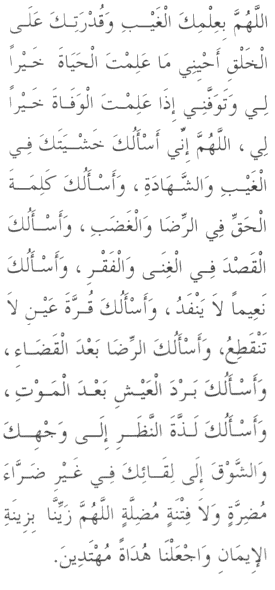 اللَّهُمَّ بِعِلْمِكَ الْغَيْبِ وَقُدْرَتِكَ عَلَى
الْخَلْقِ أَحْيِنِي مَا عَلِمْتَ الْحَيَاةَ خَيْراً
لِي وَتَوَفَّنِي إِذَا عَلِمْتَ الْوَفَاةَ خَيْراً
لِي ، اللَّهُمَّ إِنِّي أَسْأَلُكَ خَشْيَتَكَ فِي
الْغَيْبِ وَالشَّهَادَةِ ، وَأَسْأَلُكَ كَلِمَةَ
الْحَقِّ فِي الرِّضَا وَالْغَضَبِ ، وَأَسْأَلُكَ
الْقَصْدَ فِي الْغِنَى وَالْفَقْرِ ، وَأَسْأَلُكَ
نَعِيماً لاَ يَنْفَدُ ، وَأَسْأَلُكَ قُرَّةَ عَيْنٍ لاَ
تَنْقَطِعُ، وَأَسْأَلُكَ الرِّضَا بَعْدَ الْقَضَاءِ ،
وَأَسْأَلُكَ بَرْدَ الْعَيْشِ بَعْدَ الْمَوْتِ ،
وَأَسْأَلُكَ لَذَّةَ النَّظَرِ إِلَى وَجْهِكَ
وَالشَّوْقَ إِلَى لِقَائِكَ فِي غَيْرِ ضَرَّاءَ
مُضِرَّةٍ وَلاَ فِتْنَةٍ مُضِلَّةٍ اللَّهُمَّ زَيِّنَّا بِزِينَةِ
الإِيمَانِ وَاجْعَلْنَا هُدَاةً مُهْتَدِينَ.